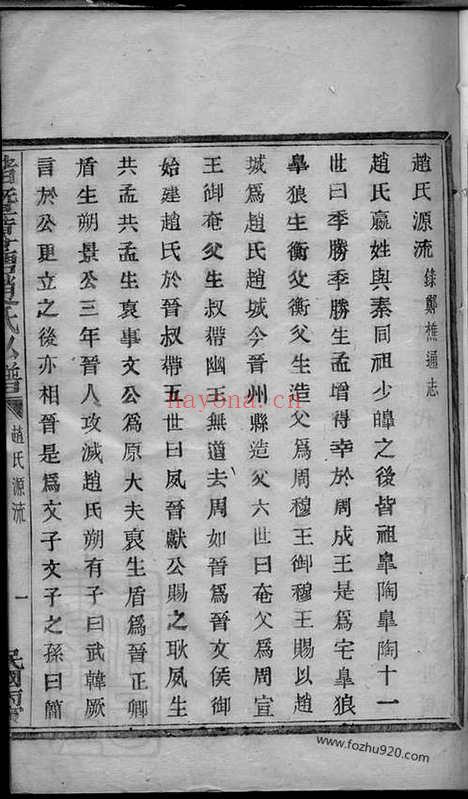 趙氏源流 錄鄭樵通志
趙氏嬴姓與秦同祖少皥之後皆祖臯陶臯陶十一
世曰季勝季勝生孟增得幸於周成王是爲宅臯狼
臯狼生衡父衡父生造父爲周穆王御穆王賜以趙
城爲趙氏趙城今晉州縣造父六世曰奄父爲周宣
王御奄父生叔帶幽王無道去周如晉爲晉文侯御
始建趙氏於晉叔帶五世曰夙晉獻公賜之耿夙生
共孟共孟生衰事文公爲原大夫衰生盾爲晉正卿
盾生朔景公三年晉人攻滅趙氏朔有子曰武韓厥
言於公更立之後亦相晉是爲文子文子之孫曰簡
趙氏宗譜
趙氏源流
一
民國
hayona.cn
www.fozhu920.com